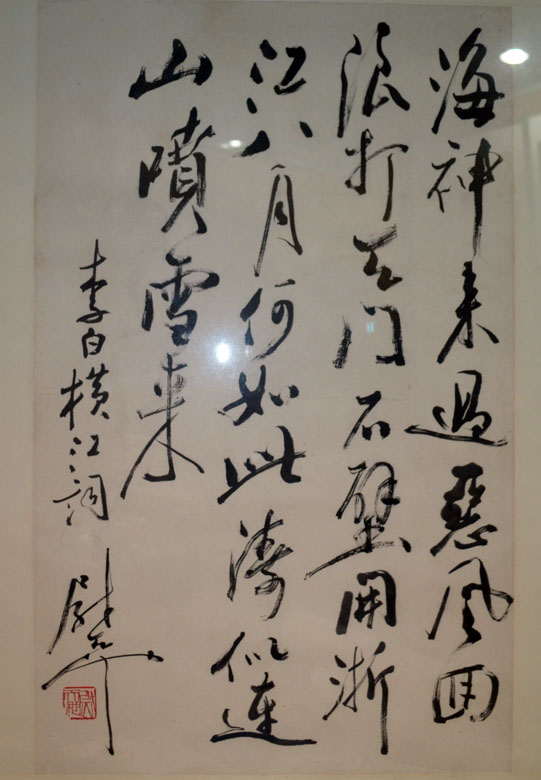 海神来過惡風囬
浪打天门石壁開浙
江八月何如此濤似連
山噴雪来
李白横江詞